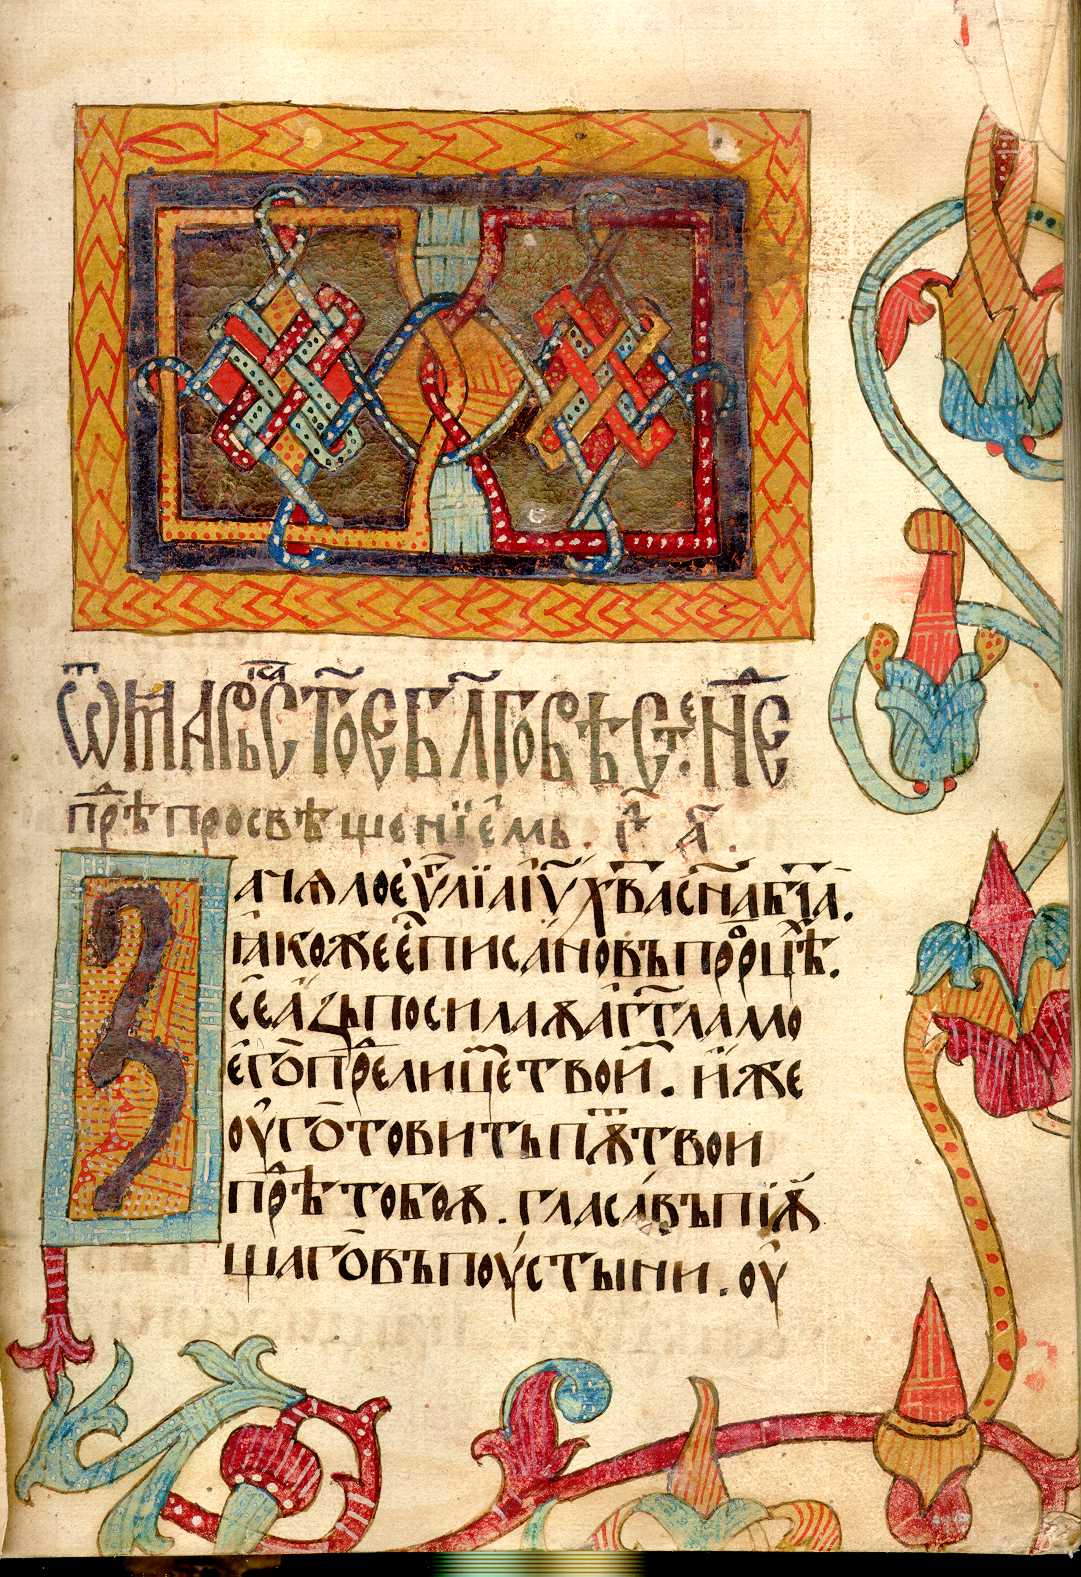 Ѿ мар҇ка ст҃ое бл҃говѣст҇ени҇е
пр҇ѣ просвѣщенїе҇мь. гл҃ а҃.
Зачѧло еѵ҃лїа іѵ҃ х҃ва сн҃а бж҃їа.
ꙗкоже е҇ писано въ пр҇ороцѣ҇.
се азь посилаѫ аг҃гла мо
его прѣ҇ лицем҇ твои҇м. иже
оуготовить пѫ҇ть твои
прѣ҇ тобоѫ. глась въпїѫ
щаго въ поустыни. оу